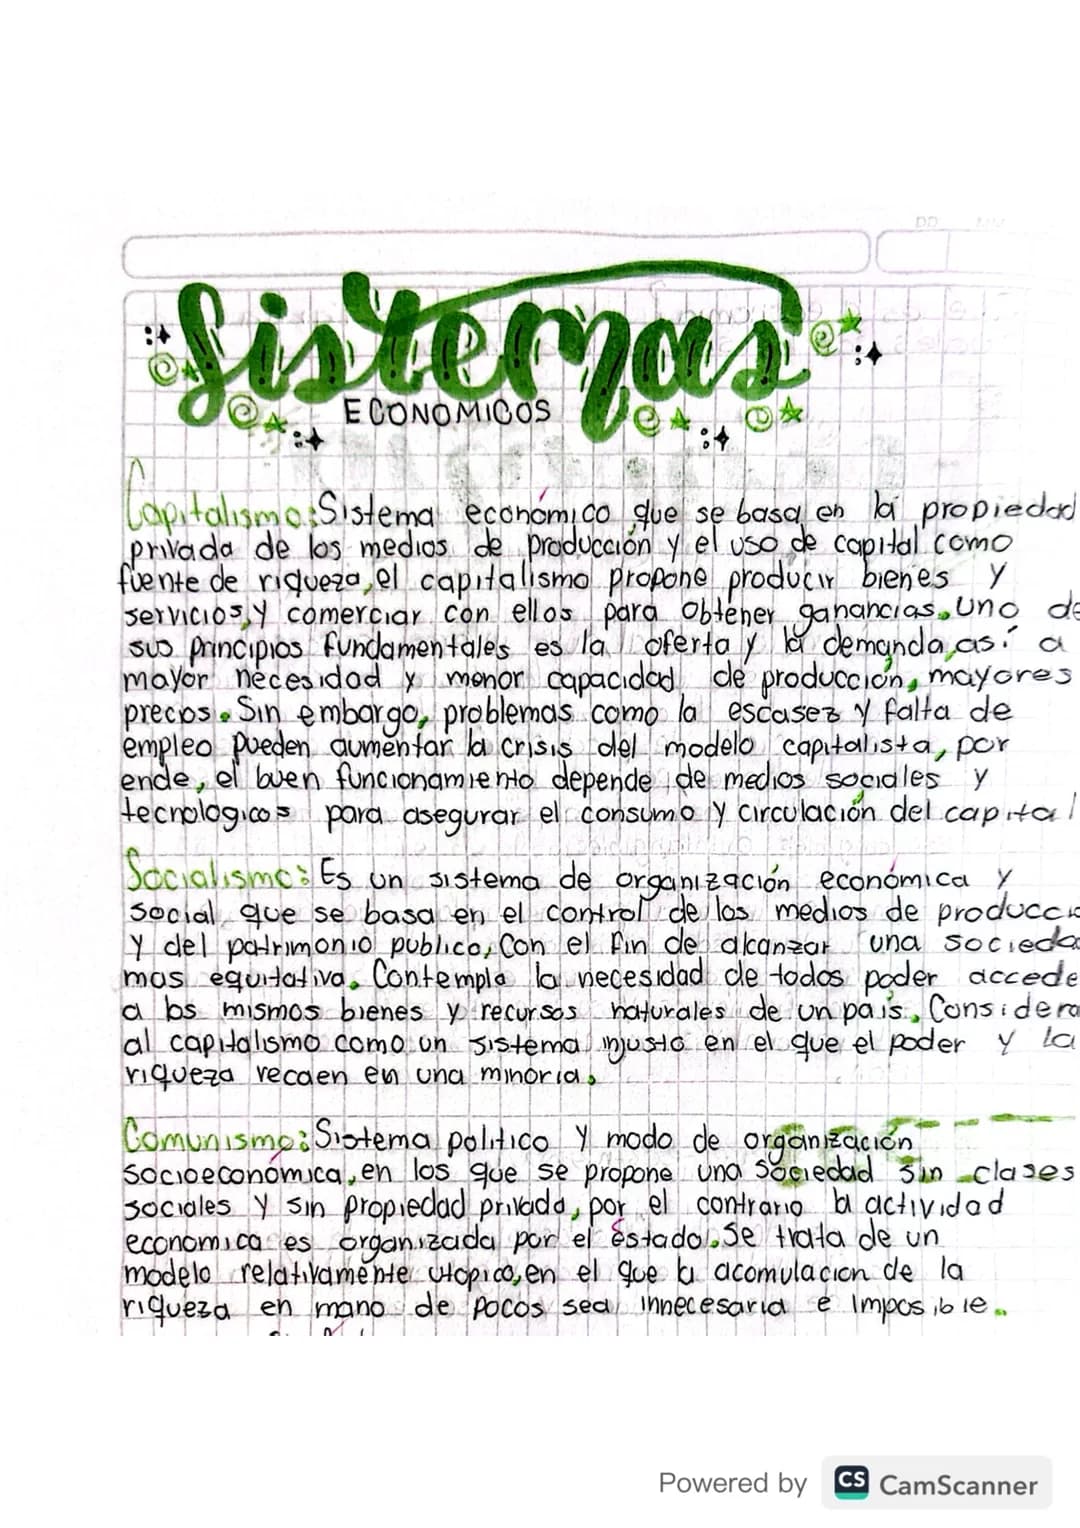 DD
Sistemas
ECONOMICOS
Capitalismo: Sistema económico que se basa en la propiedad
privada de los medios de producción y el uso de capital como
fuente de riqueza, el capitalismo propone producir bienes y
servicios, y comerciar con ellos para obtener ganancias. Uno de
sus principios fundamentales es la oferta y la demanda, así a
mayor necesidad y menor capacidad de producción, mayores
precios. Sin embargo, problemas como la escasez y falta de
empleo pueden aumentar la crisis del modelo capitalista, por
ende, el buen funcionamiento depende de medios sociales y
tecnologicos para asegurar el consumo y circulación del capital
Socialismo: Es un sistema de organización económica y
social que se basa en el control de los medios de producció
y del patrimonio publico, con el fin de alcanzar una socieda
mas equitativa. Contempla la necesidad de todos poder accede
a los mismos bienes y recursos naturales de un pais. Considera
al capitalismo como un sistema injusto en el que el poder y la
riqueza recaen en una minoria.
Comunismo: Sistema politico y modo de organización
socioeconómica, en los que se propone una sociedad sin clases
sociales y sin propiedad privada, por el contrario la actividad
economica es organizada por el estado. Se trata de un
modelo relativamente utopico, en el que la acomulacion de la
riqueza en mano de pocos sea innecesaria e imposible.
Powered by CS CamScanner